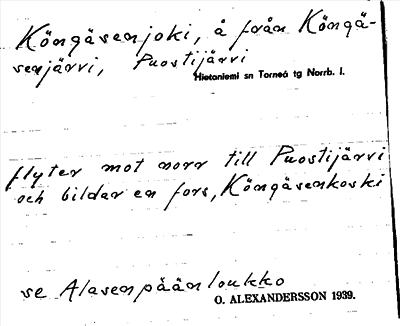 Köngäsenjoki, å från Köngä-
senjärvi, Puostijärvi
Hietaniemi sn Torneå tg Norrb. l.
flyter mot norr till Puostijärvi
och bildar en fors, Köngäsenkoski
se Alasenpäänloukko
O. ALEXANDERSSON 1939.